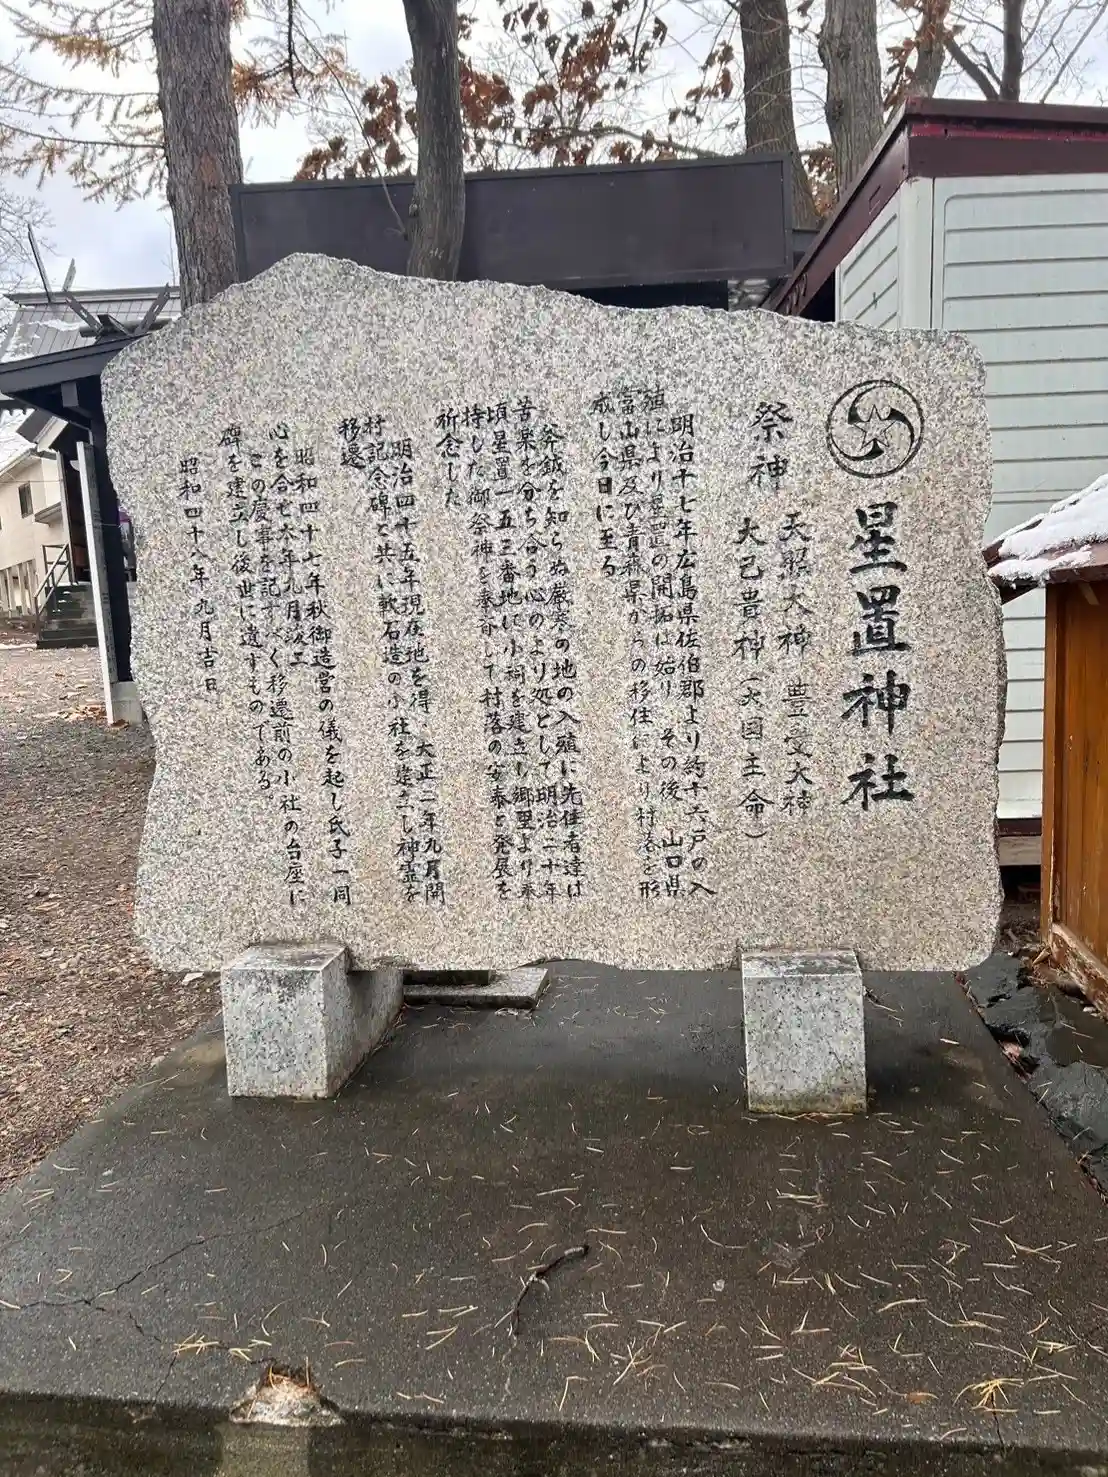 星置神社
祭神 天照大神 豊受大神
大己貴神(大国主命)
明治十七年広島県佐伯郡より約十六戸の入
殖により星置の開拓は始り その後 山口県
富山県及び青森県からの移住により村落を形
成し今日に至る
斧鉞を知らぬ厳寒の地の入殖に先住者達は
苦楽を分ち合う心のより処として明治二十年
頃星置一五三番地に小祠を建立し郷里より奉
持した御祭神を奉斎して村落の安泰と発展を
祈念した
明治四十五年現在地を得 大正二年九月開
村記念碑と共に軟石造の小社を建立し神霊を
移遷
昭和四十七年秋御造営の儀を起し氏子一同
心を合せ本年九月竣工
この慶事を記すべく移遷前の小社の台座に
碑を建立し後世に遺すものである
昭和四十八年 九月吉日